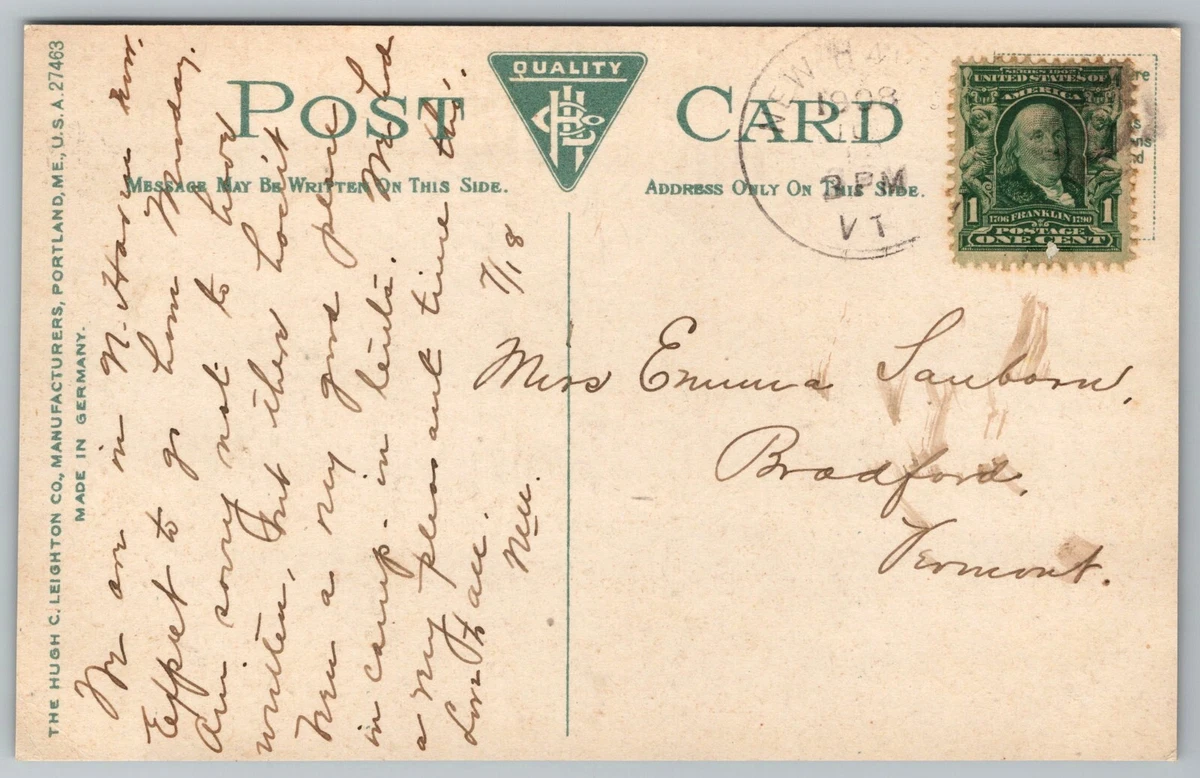 THE HUGH C. LEIGHTON CO., MANUFACTURERS, PORTLAND, ME., U.S.A. 27463
MADE IN GERMANY.
POST CARD
QUALITY
MESSAGE MAY BE WRITTEN ON THIS SIDE.
ADDRESS ONLY ON THIS SIDE.
NEW HA
1908
2 PM
VT
SERIES 1902
UNITED STATES OF
AMERICA
1 1
1706 FRANKLIN 1790
POSTAGE
ONE CENT
We are in N. Haven now.
Expect to go home Monday.
Am sorry not to have
written, but there
a very good place
in camp. We had
a very pleasant time tho'.
Love to all.
7/18
Miss Emma Sanborn,
Bradford,
Vermont.